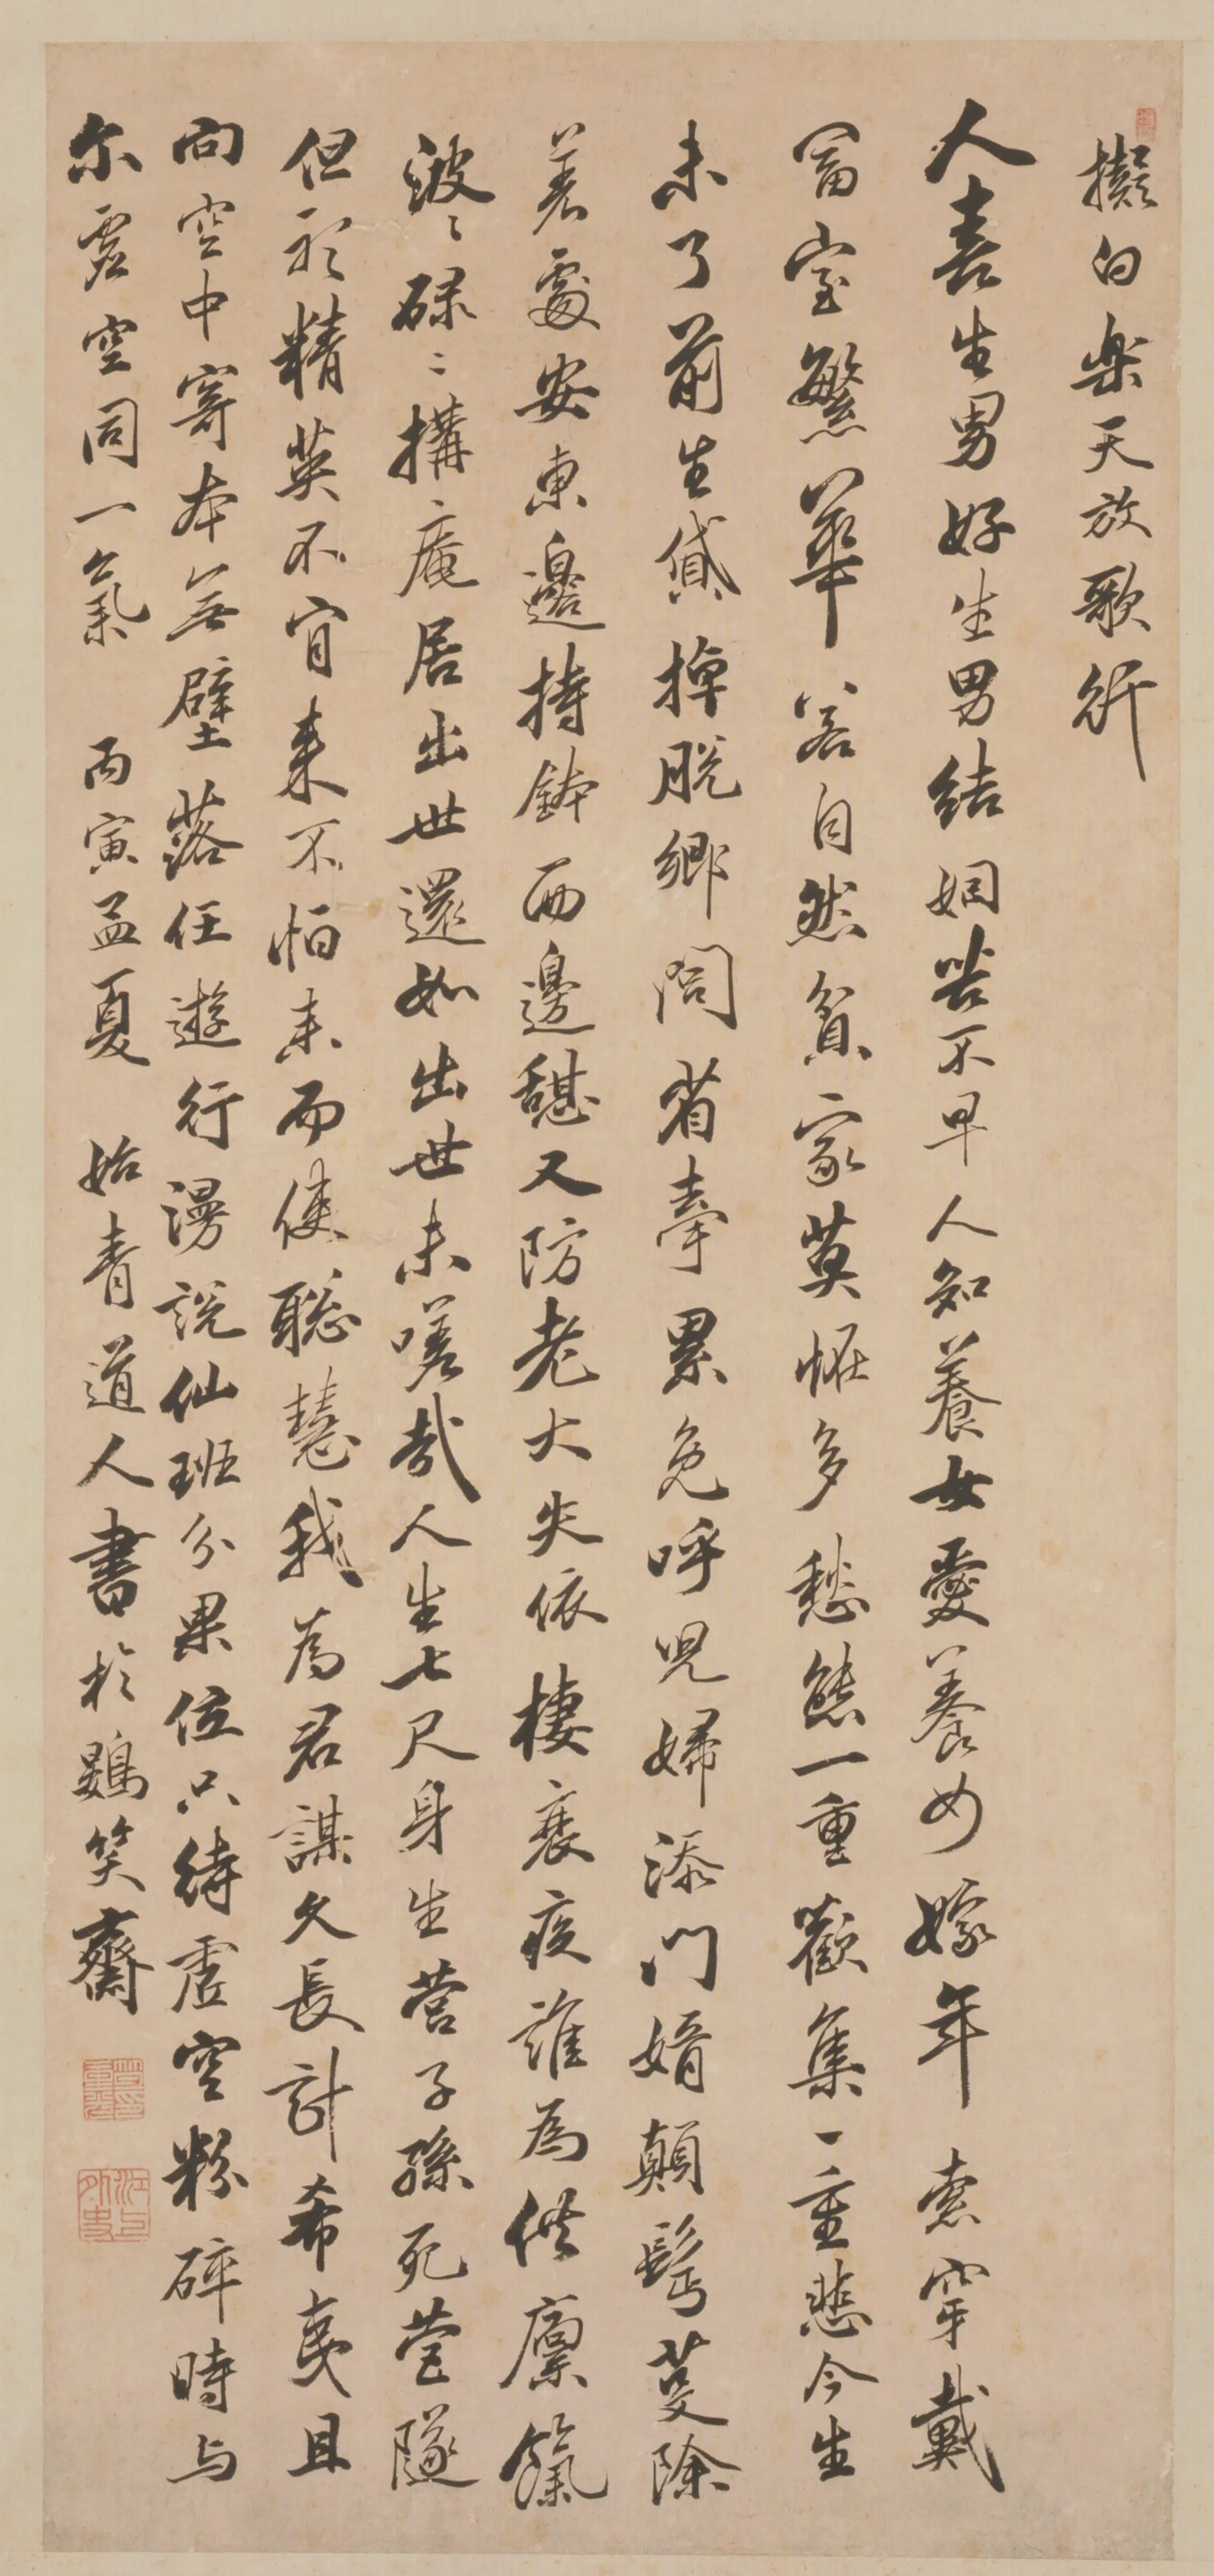 擬白樂天放歌行
人喜生男好生男結姻苦不早人知養女愛養女嫁年索穿戴
富室繁華容自然貧家莫怪多愁態一重歡集一重悲今生
未了前生貸掉脫鄉閭省牽累免呼兒婦添門婿顛髩芟除
差處安東邊持鉢西邊憇又防老大失依棲衰疾誰為供廩餼
波〻碌〻搆庵居出世還如出世未嗟哉人生七尺身生營子孫死營隧
但祈精英不肯來不怕未而使聰慧我為君謀久長計希夷且
向空中寄本無壁落任遊行漫說仙班分果位只待虛空粉碎時与
尔虛空同一氣 丙寅孟夏 始青道人書於鷃笑齋
笪重光印
江上外史